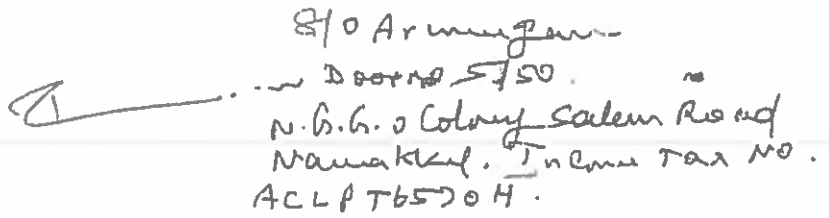 S/o Arumugam
Door No 5/50.
N.G.G.O Colony Salem Road
Namakkal. Income Tax No.
ACLPT6570H.